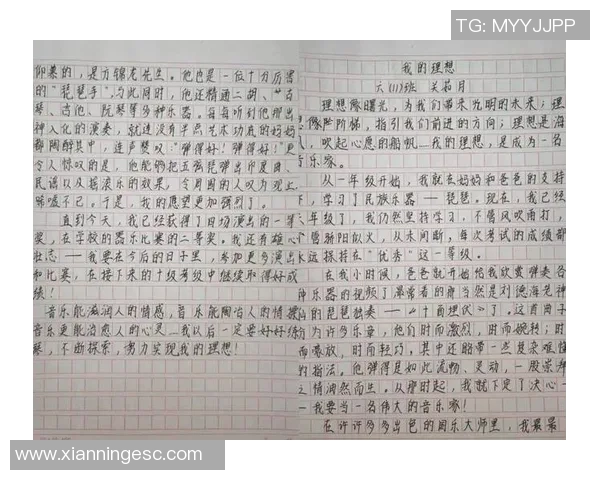 TG: MYYJJPP
我的理想
六(11)班 关茹月
理想像曙光，为我们带来光明的未来；理
像阶梯，指引我们前进的方向；理想是海
，吹起心愿的船帆……我的理想，是成为一名
音乐家。
从一年级开始，我就在妈妈和爸爸的支持
下，学习了民族乐器——琵琶。现在，我已经
年级了，我仍然坚持学习，不管风吹雨打，
管骄阳似火，从未间断，每次考试的成绩都
永远保持在“优秀”这一等级。
在我小时候，爸爸就开始给我欣赏弹奏各
种乐器的视频了最常看的当然是刘德海老
的琵琶独奏——《十面埋伏》了。这首曲子
为许多乐章，他们时而激烈，时而婉转；时
而豪放，时而轻巧，其中还略带一些复杂难
的指法。他弹得是如此流畅、灵动，一股崇
之情油然而生。从那时起，我就下定了决心—
—我要当一名伟大的音乐家！
在许许多多出色的国乐大师里，我最最
仰慕的，是方锦龙先生。他也是一位十分厉害
的“琵琶手”，与此同时，他还精通二胡、古
琴、吉他、阮琴等多种乐器。每每听到他那出
神入化的演奏，就连没有半点艺术功底的妈妈
都陶醉其中，连声赞叹：“弹得好！弹得好！”更
令人惊叹的是，他能够把五弦琵琶弹出印度曲、
民谣以及摇滚乐的效果，令周围的人叹为观止、
唏嘘不已。于是，我的愿望更加强烈了。
直到今天，我已经获得了日场演出的一等
奖，在学校的器乐比赛的二等奖。我还有雄心
壮志——我要在今后的日子里，参加更多演出
和比赛，在接下来的十级考级中继续取得好成
绩！
音乐能滋润人的情感，音乐能陶冶人的情操
音乐更能治愈人的心灵……我以后一定要好好练
琴，不断探索，努力实现我的理想！
www.xianningesc.com